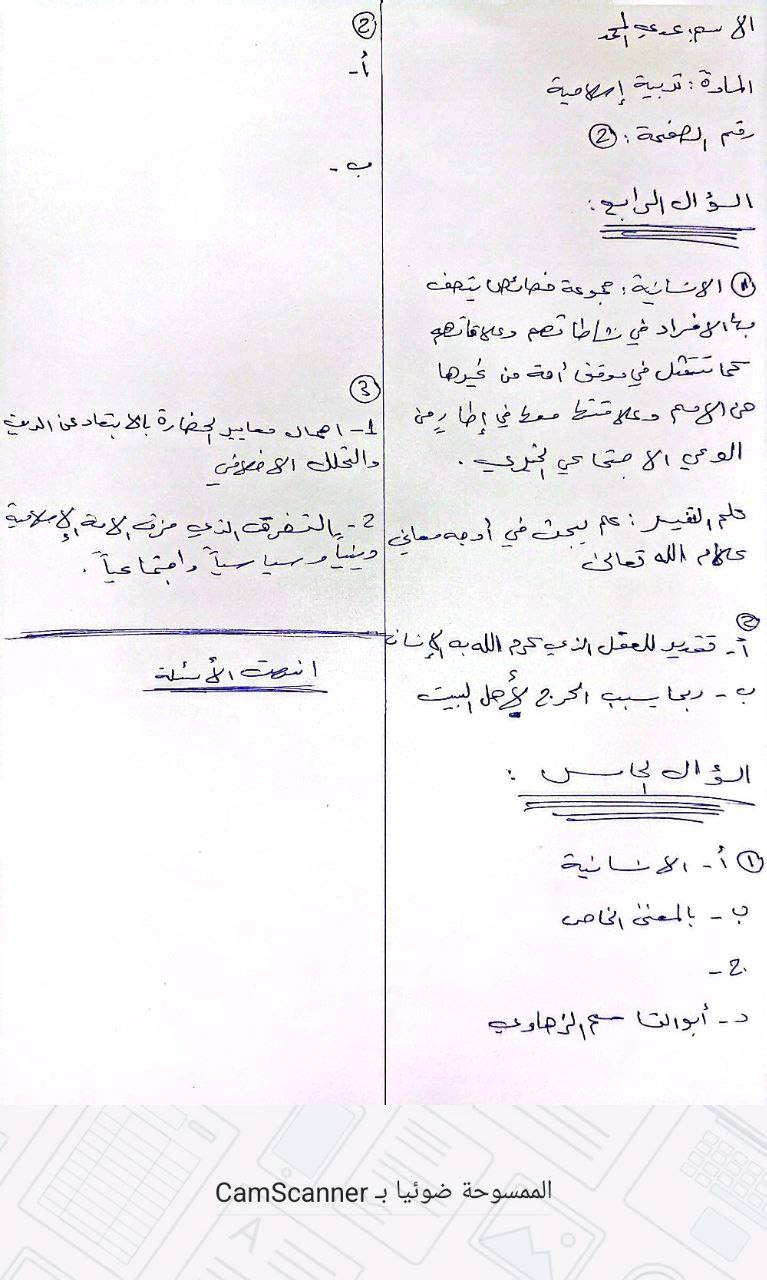 الاسم: عدي المحمد
المادة: تربية إسلامية
رقم الصفحة: ②
السؤال الرابع:
① الانسانية: مجموعة خصائص يتصف
بها الافراد في نشاطاتهم وعلاقاتهم
كما تتمثل في موقف أمة من غيرها
من الامم وعلاقتها معها في إطار من
الوعي الاجتماعي الخيري.
علم التفسير: علم يبحث في أوجه معاني
كلام الله تعالى
②
أ- تقدير للعقل الذي كرم الله به الإنسان
ب- ربما يسبب الحرج لأهل البيت
السؤال الخامس:
① أ- الانسانية
ب- بالمعنى الخاص
ج-
د- أبو القاسم الزهراوي
②
أ-
ب-
③
1- اهمال معايير الحضارة بالابتعاد عن الدين
والتحلل الاخلاقي
2- بالتفرق الذي مزق الامة الإسلامية
دينياً وسياسياً واجتماعياً.
انتهت الأسئلة
الممسوحة ضوئيا بـ CamScanner